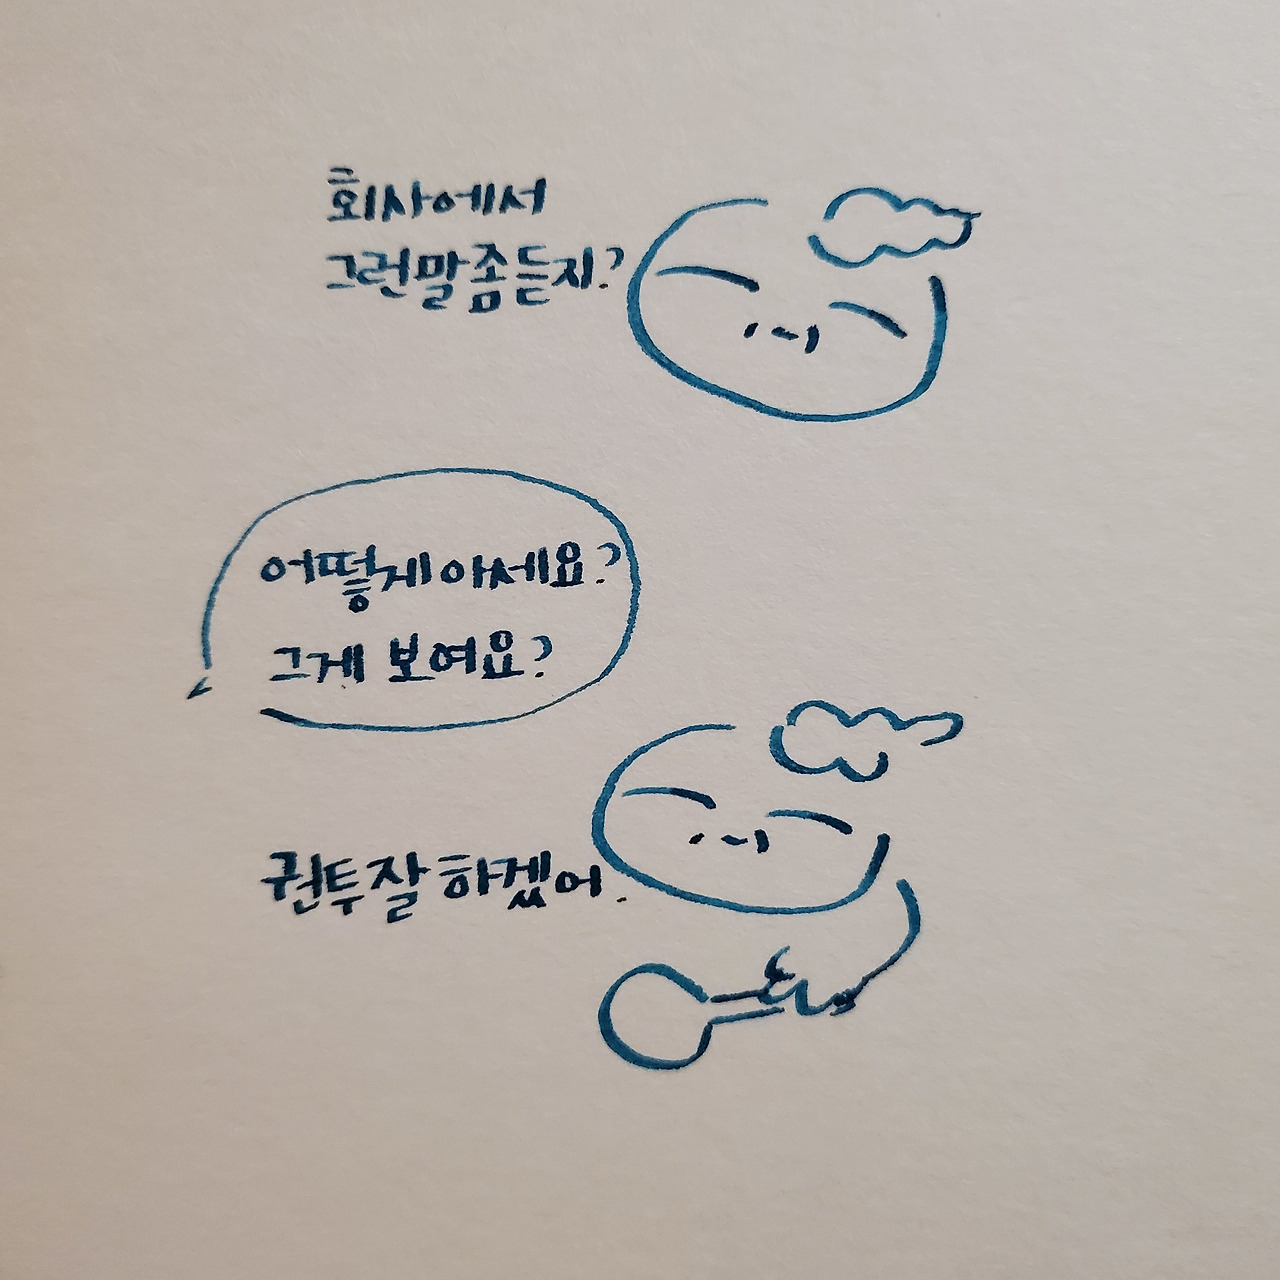 회사에서
그런말좀듣지?
어떻게아세요?
그게 보여요?
권투잘하겠어.